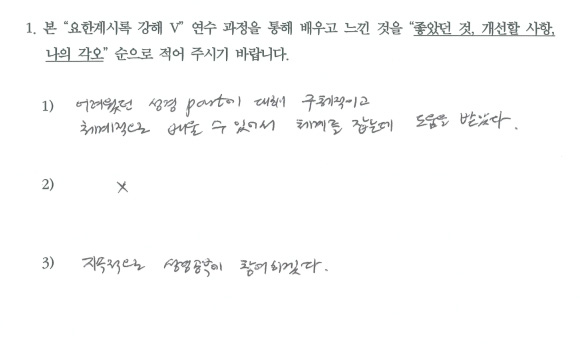 1. 본 “요한계시록 강해 V” 연수 과정을 통해 배우고 느낀 것을 “좋았던 것, 개선할 사항,
나의 각오” 순으로 적어 주시기 바랍니다.
1) 어려웠던 성경 part에 대해 구체적이고
체계적으로 배울 수 있어서 체계를 잡는데 도움을 받았다.
2) X
3) 지속적으로 성경공부에 참여하겠다.